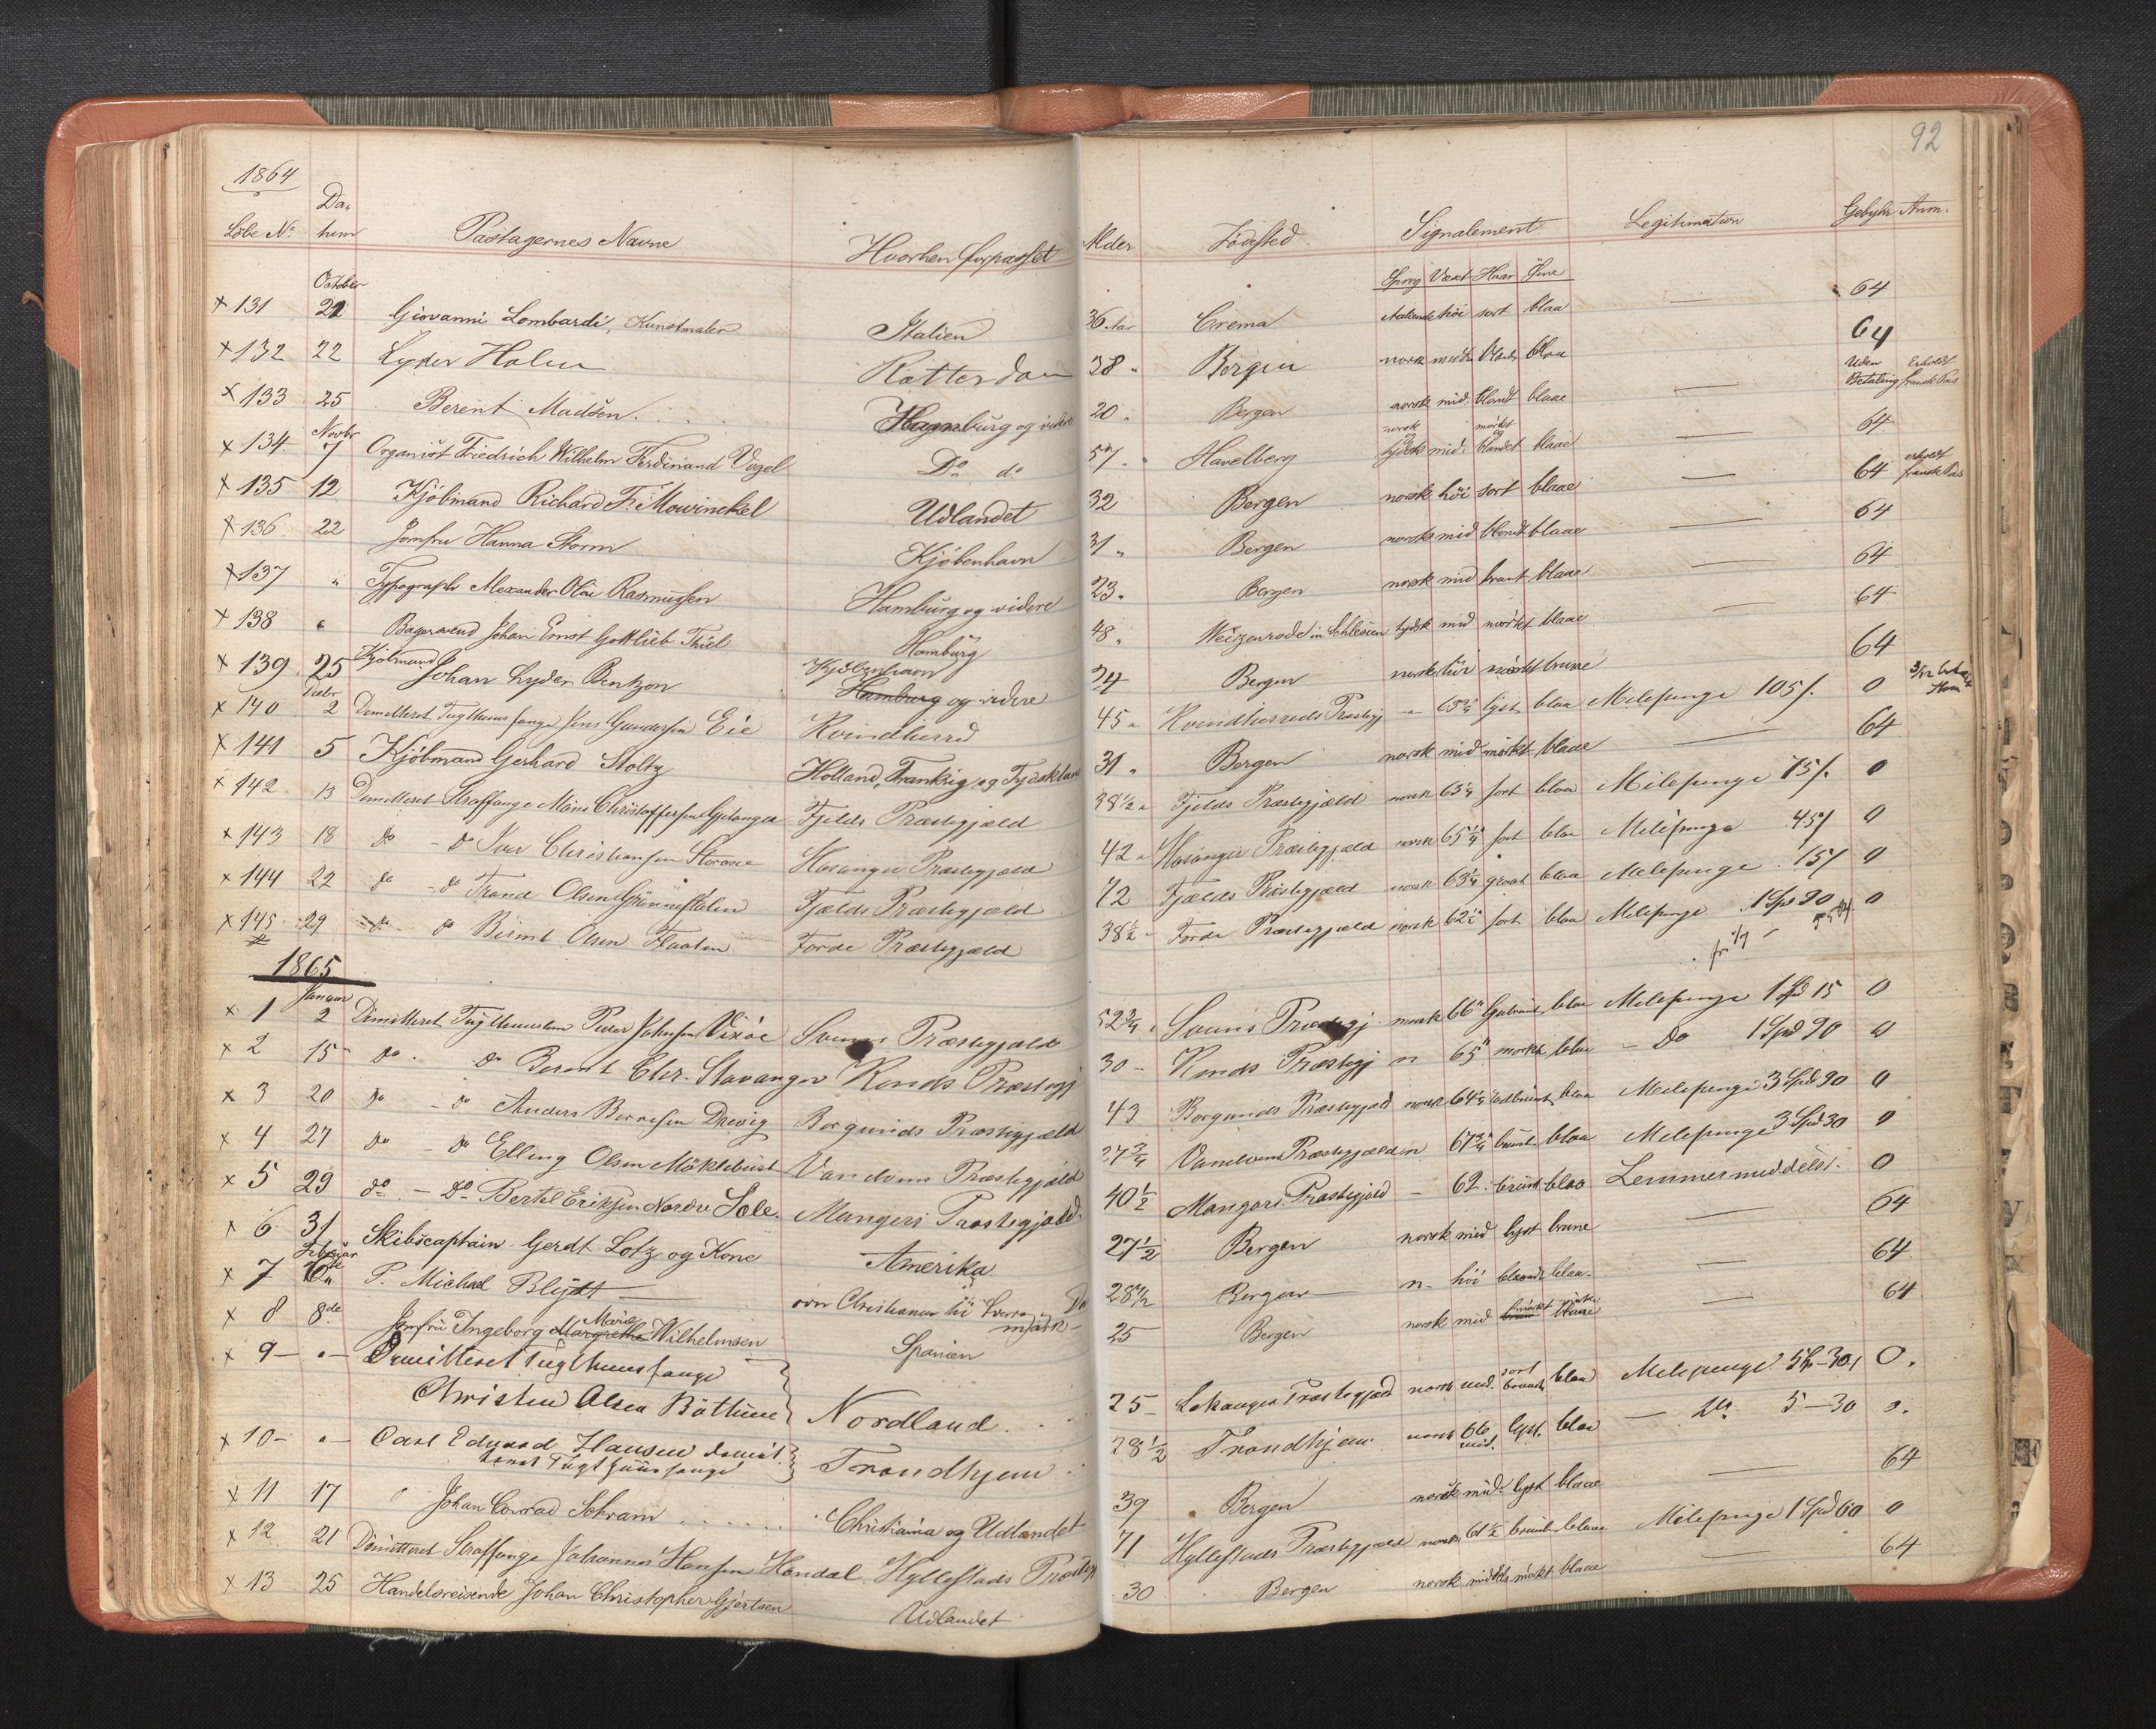 92
1864
Löbe No. Datum Pastagernes Navne Hvorhen forpasset Alder Fødested Signalement Legitimation Gebyhr Anm.
Sprog Væxt Haar Øine
October
x 131 21 Giovanni Lombardi, Kunstmaler Italien 36 Aar Crema italiensk höi sort blaa — 64
x 132 22 Lyder Holm Rotterdam 28 " Bergen norsk blaa 64
x 133 25 Berent Madsen. Hamburg og videre 20 " Bergen norsk mid. blondt blaae — Uden Betaling Erholdt fransk Pas
Novbr
x 134. 7 Organist Friedrich Wilhelm Ferdinand Vogel Do do 57 " Havelberg norsk og tydsk mid. mörkt og blandet blaae — 64
x 135 12 Kjöbmand Richard Fr. Mowinckel Udlandet 32 Bergen norsk höi sort blaae — 64 erholdt fransk Pas
x 136 22 Jomfru Hanna Storm Kjöbenhavn 31 " Bergen norsk mid blondt blaae — 64
x 137 " Typograph Alexander Olai Rasmussen Hamburg og videre 23 " Bergen norsk mid brunt blaae — 64
x 138 " Bagersvend Johan Ernst Gottlieb Thiel Hamburg 48 " Weizenrode in Schlesien tydsk mid mörkt blaae — 64
x 139 25 Kjöbmand Johan Lyder Bentzon Kjöbenhavn Hamburg og videre 24 Bergen norsk höi mörkt brune 64
Decbr
x 140 2 Demitteret Tugthuusfange Jens Gundersen Eie Kvindherred 45 " Kvindherreds Præstegj " lyst blaa Milepenge 105/. 0
x 141 5 Kjöbmand Gerhard Stoltz Holland, Frankrig og Tydskland 31 " Bergen norsk mid mörkt blaae — 64
x 142 13 Demitteret Straffange Mons Christoffersen Fjelds Præstegjæld 38 1/2 " Fjelds Præstegjæld norsk 63 1/4 sort blaa Milepenge 75/. 0
x 143 18 do - do Iver Christiansen Hosanger Præstegjæld 42 " Hosanger Præstegjæld norsk 65 1/4 sort blaa Milepenge 45/ 0
x 144 22 do - do Trond Olsen Fjælds Præstegjæld 72 Fjælds Præstegjæld norsk 63 1/4 graat blaa Milepenge 15/ 0
x 145 29 do - do Olsen Flaaten Førde Præstegjæld 38 1/2 " Førde Præstegjæld norsk 62 1/2 sort blaa Milepenge 1 Spd 90 0
1865
Januar
x 1 2 Dimitteret Peder Johnsen Præstegjæld 52 3/4 " Præstegj norsk 66" blaa Milepenge 1 Spd 15 0
x 2 15 do - do Bernt Chr. Stavanger Kinds Præstegj 30 - Kinds Præstegj n 65" mörkt blaa - Do 1 Spd 90 0
x 3 20 do - do Anders Drevig Borgunds Præstegjæld 43 Borgunds Præstegjæld norsk blaa Milepenge 3 Spd 90 0
x 4 27 do - do Elling Olsen Möklebust Vandvens Præstegjæld 27 3/4 Vandvens Præstegjæld n 67 3/4 brunt blaa Milepenge 3 Spd 30 0
x 5 29 do - Do Bertel Eriksen Nordre Sole. Mangers Præstegjæld. 40 1/2 Mangers Præstegjæld - 62. brunt blaa 0
x 6 31 Skibscaptain Gerdt Lotz og Kone Amerika 27 1/2 Bergen norsk mid lyst brune — 64
Februar
x 7 P. Michael Blydt — over Christiania til 28 1/2 Bergen n- höi blondt blaa — 64
x 8 8de Jomfru Ingeborg Margrethe Marie Wilhelmsen Spanien 25 Bergen norsk mid mörkt blaae — 64
x 9 - " - Demitteret Tugthuusfange
Christen Olsen Nordland 25 - Præstegjæld norsk mid. sort blaa Milepenge 5 - 30 0.
x 10 - " - Carl Edvard Hansen demit. Tugthuusfange Trondhjem 28 1/2 Trondhjem norsk 66 mid. lyst. blaa - do. 5 - 30 0.
x 11 17 Johan Conrad Schram Christiania og Udlandet 39 Bergen norsk mid. lyst blaae — 64
x 12 21 Dimitteret Straffange Johannes Hansen Hyllestads Præstegj 71 Hyllestads Præstegjæld norsk 61 1/2 blaae Milepenge 1 Spd 60 0
x 13 25 Handelsreisende Johan Christopher Gjertsen Udlandet 30 Bergen norsk middels mörkt blaae — 64